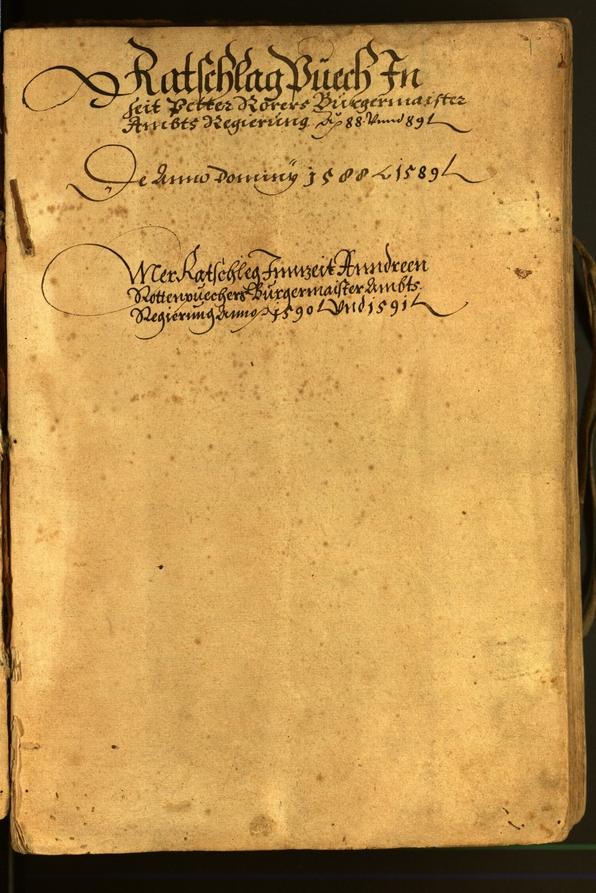 Ratschlag Püech In
seit Petter Rorers Bürgermaister
Ambts Regierung 88 vnnd 89
De Anno Dominÿ 1588 1589
Mer Ratschleg Inn zeit Anndreen
Rottenpuechers Burgermaister Ambts
Regierung Anno 1590 Vnd 1591